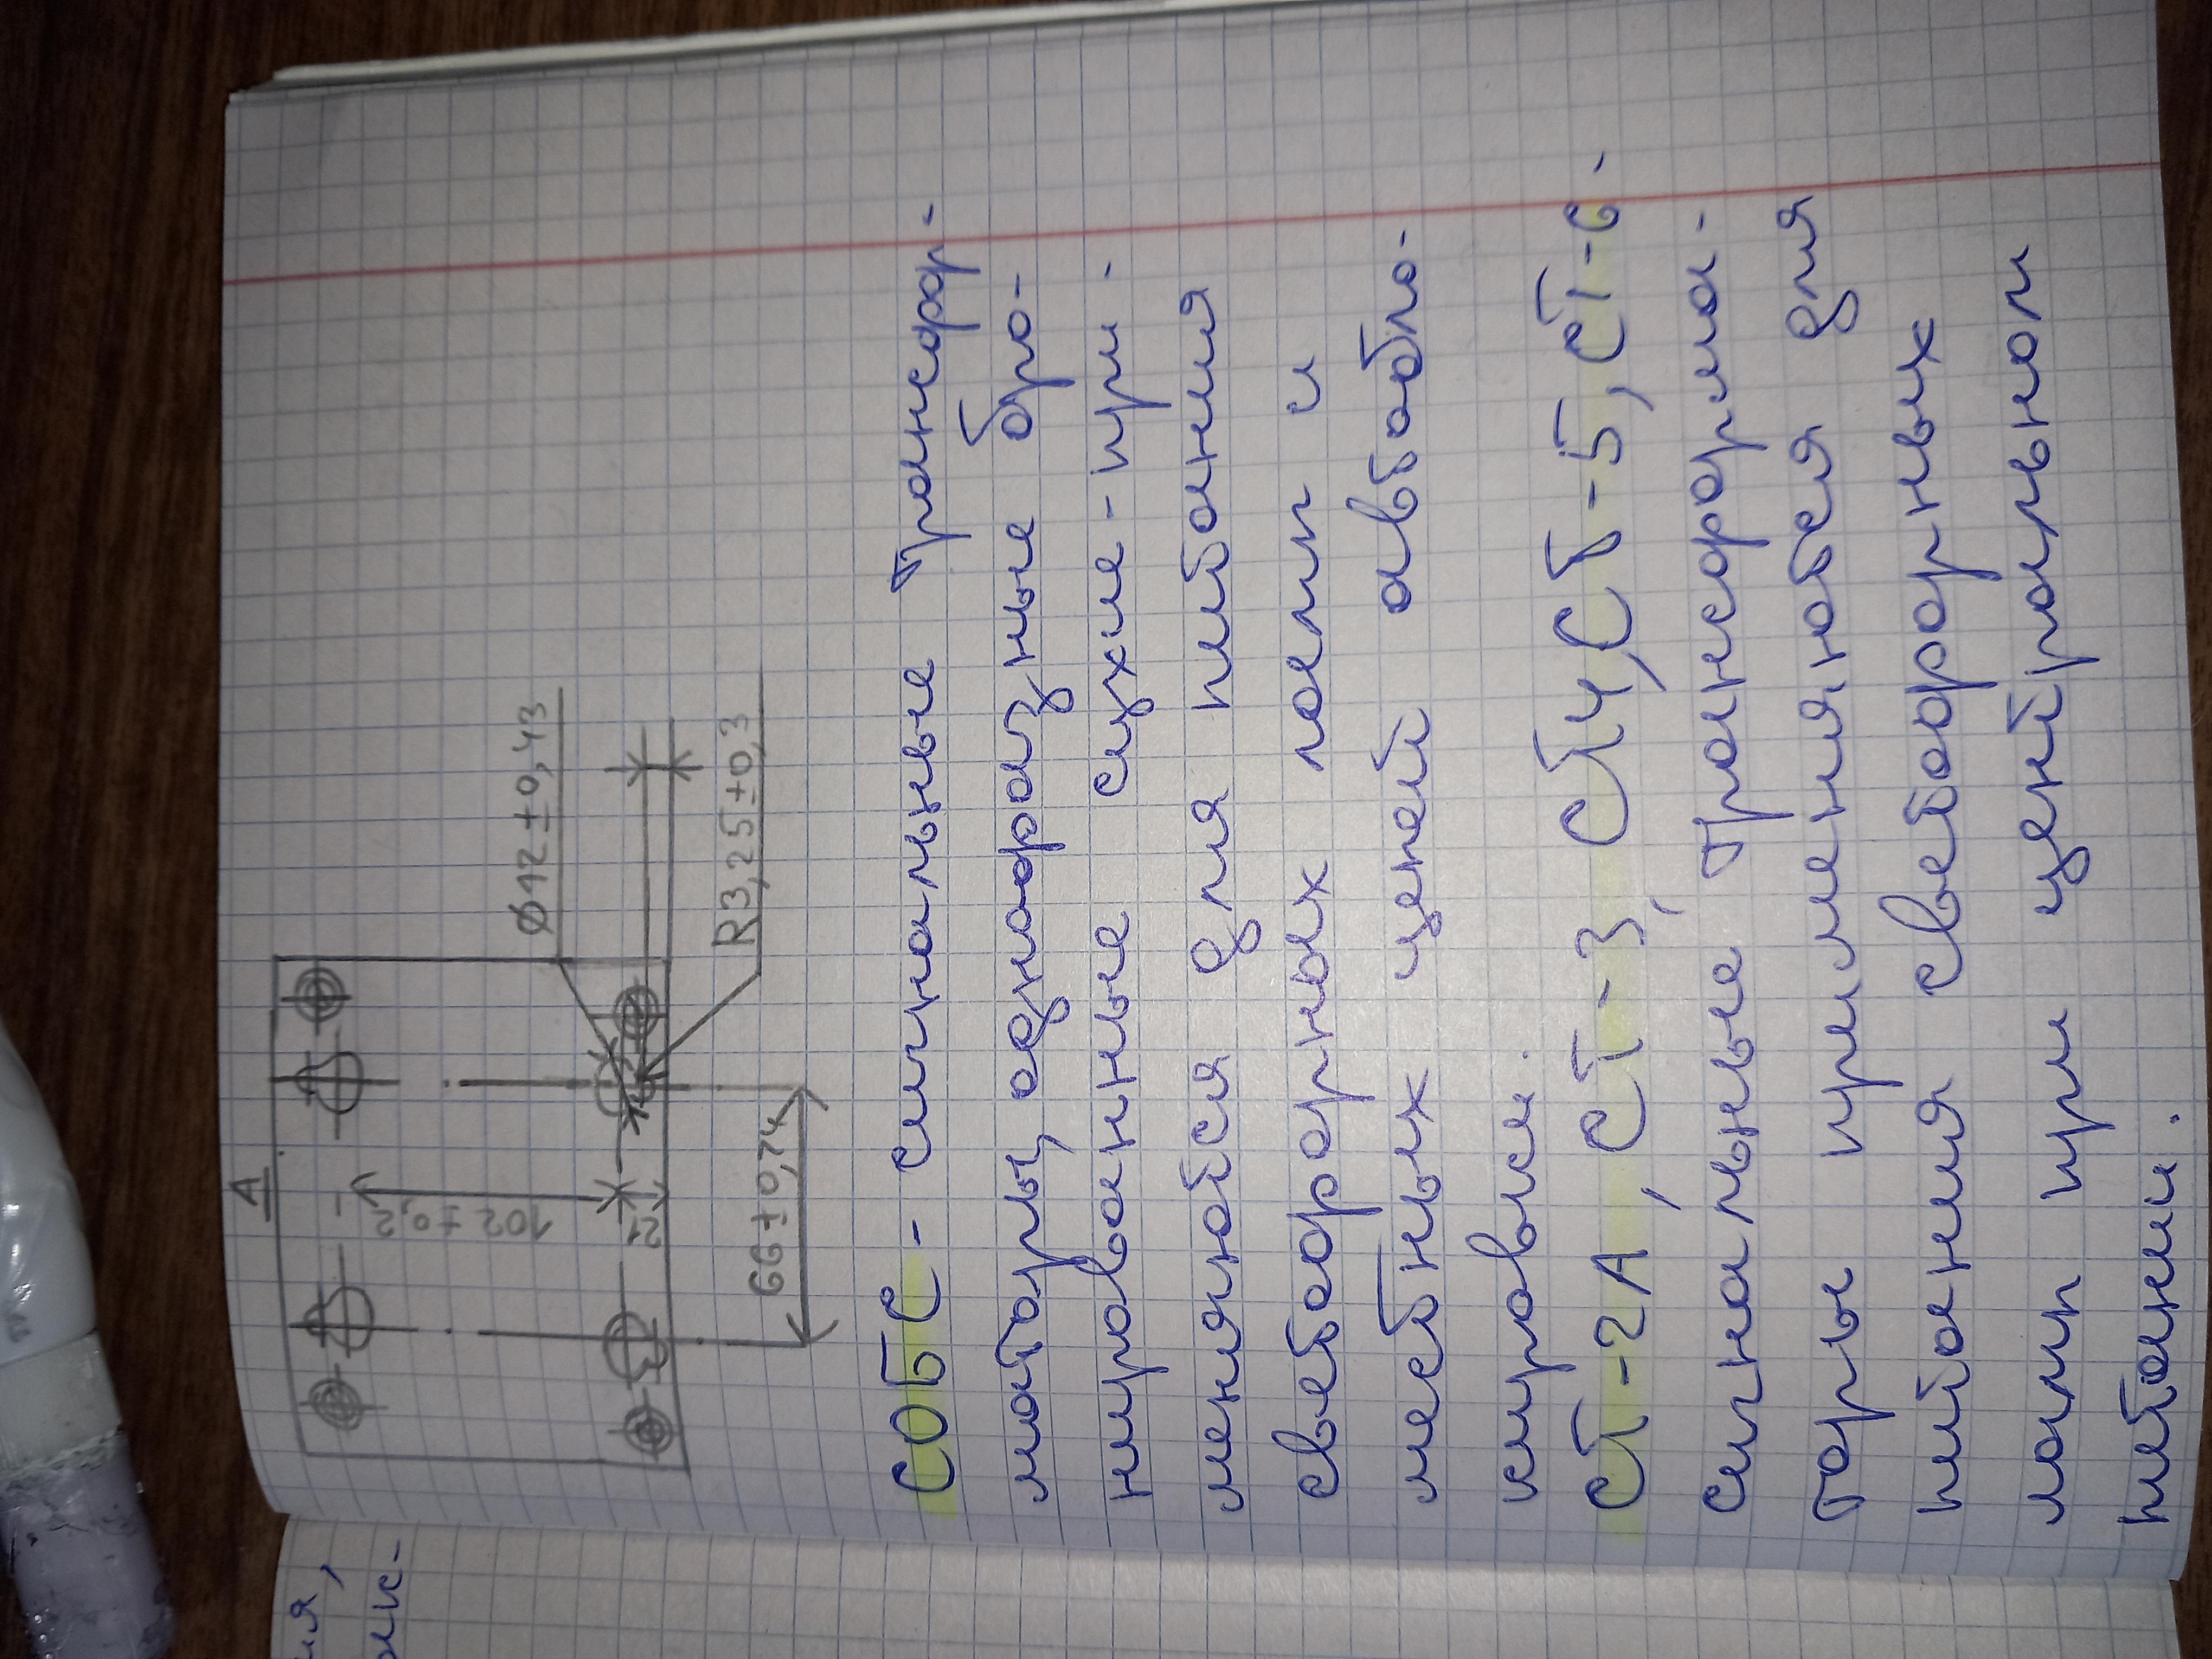 А
Ø12±0,43
102±0,2
12
R3,25±0,3
66±0,74
СОБС - сигнальные трансфор-
маторы, однофазные бро-
нированные сухие - при-
меняются для питания
светофорных ламп и
местных цепей автобло-
кировки.
СТ-2А, СТ-3, СТ4, СТ-5, СТ-6 -
сигнальные трансформа-
торы применяются для
питания светофорных
ламп при центральном
питании.
ия,